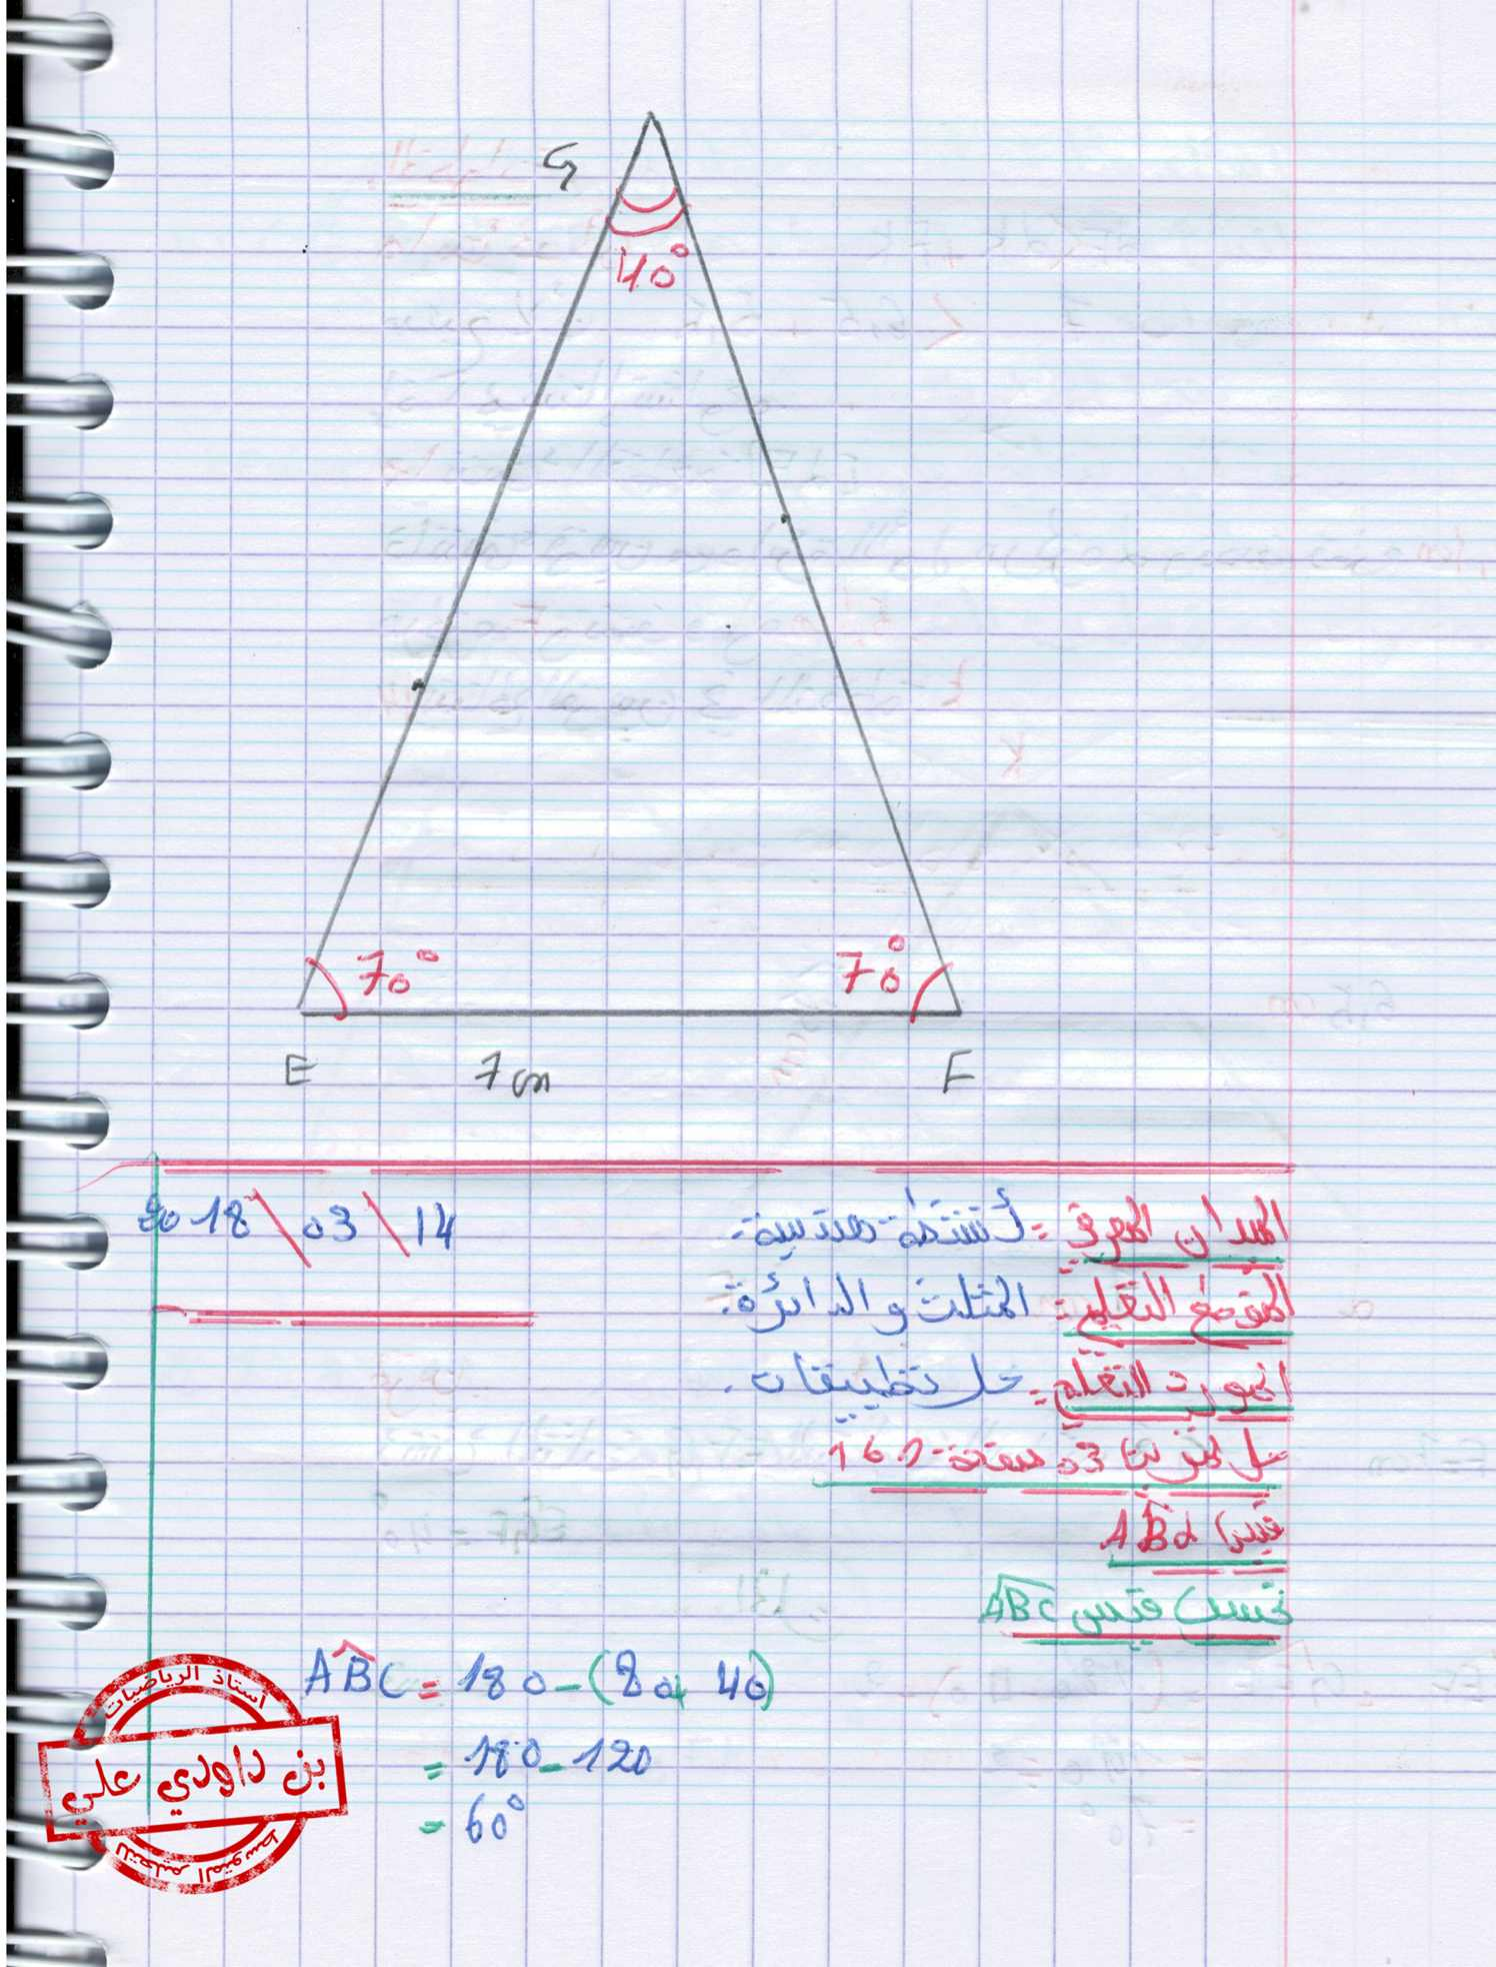 G
40°
70°
70°
E
7 cm
F
2018 \ 03 \ 14
الميدان المعرفي: أنشطة هندسية.
المقطع التعلمي: المثلث والدائرة.
المورد التعلمي: حل تطبيقات.
حل تمرين 03 صفحة 161
قيس ABd
نحسب قيس ABC
ABC = 180 - (80 + 40)
= 180 - 120
= 60°
أستاذ الرياضيات
بن داودي علي
للتعليم المتوسط